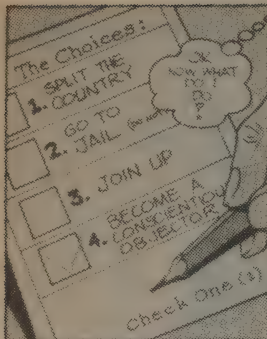 The Choices:
1. SPLIT THE
COUNTRY
2. GO TO
JAIL
3. JOIN UP
4. BECOME A
CONSCIENTIOUS
OBJECTOR
OK
NOW WHAT
DO I
DO
?
Check One (1)